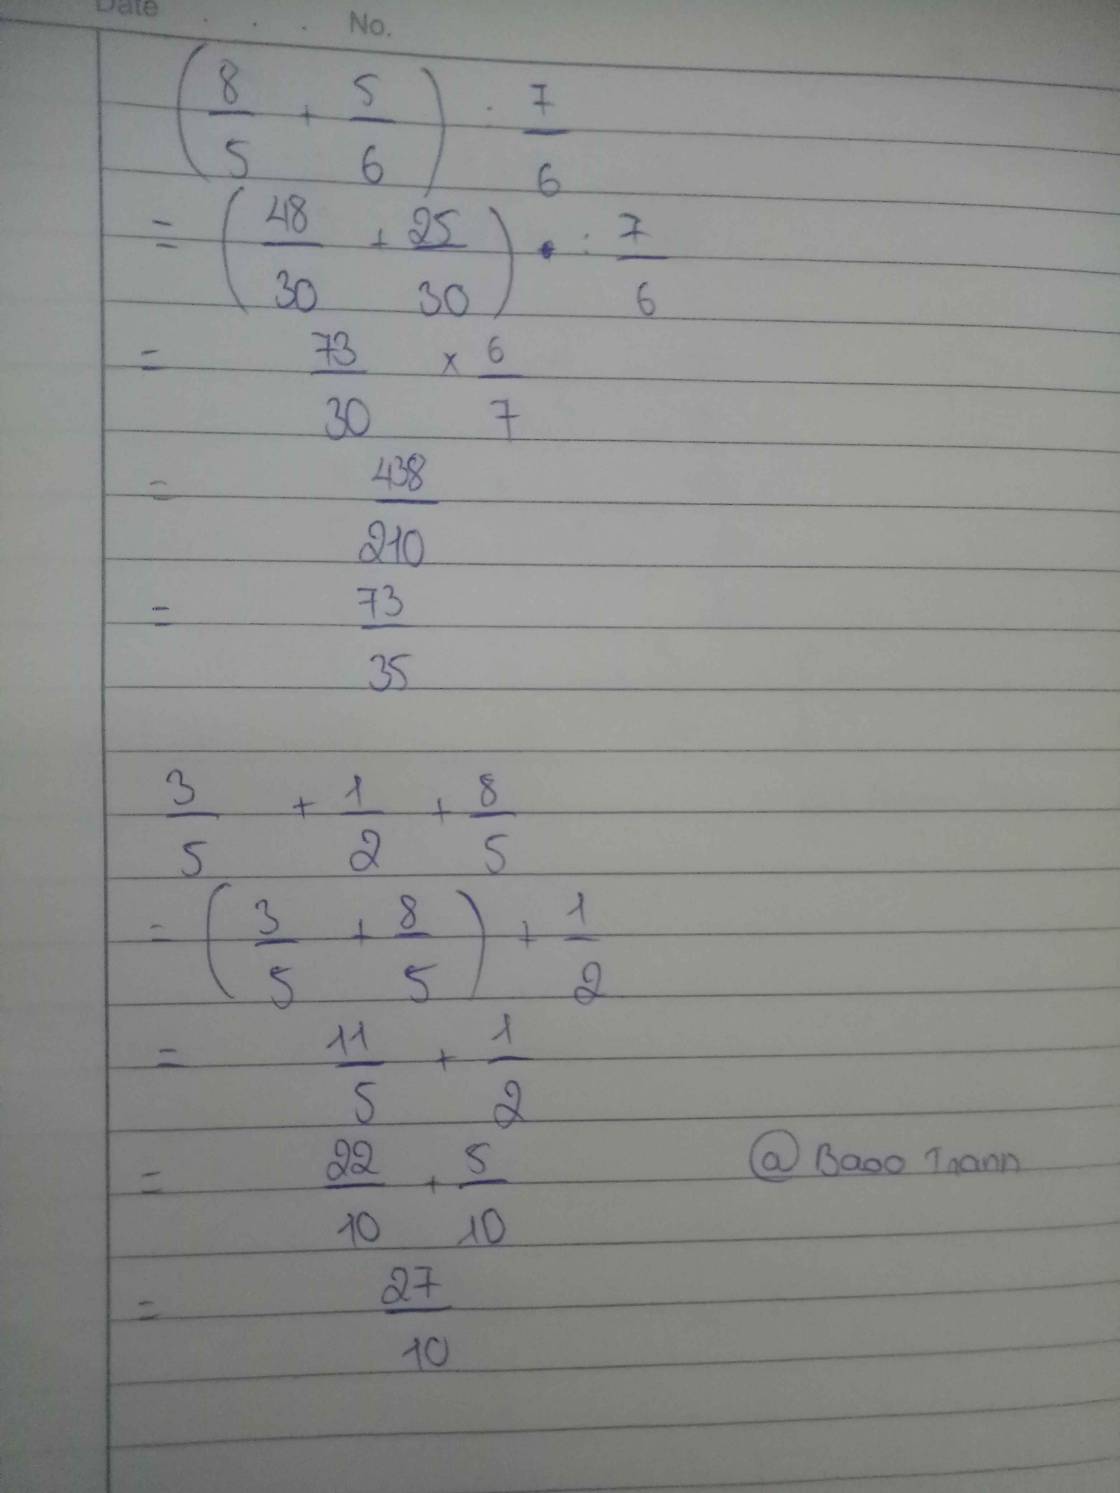 Date . . . No.
(8/5 + 5/6) : 7/6
= (48/30 + 25/30) : 7/6
= 73/30 x 6/7
= 438/210
= 73/35
3/5 + 1/2 + 8/5
= (3/5 + 8/5) + 1/2
= 11/5 + 1/2
= 22/10 + 5/10
@ Baoo Trann
= 27/10